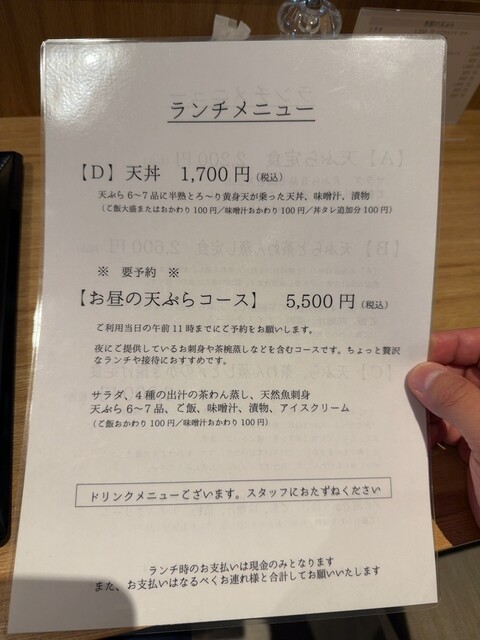 ランチメニュー
【D】天丼 1,700円（税込）
天ぷら6～7品に半熟とろ～り黄身天が乗った天丼、味噌汁、漬物
（ご飯大盛またはおかわり100円／味噌汁おかわり100円／丼タレ追加分100円）
※ 要予約 ※
【お昼の天ぷらコース】 5,500円（税込）
ご利用当日の午前11時までにご予約をお願いします。
夜にご提供しているお刺身や茶椀蒸しなどを含むコースです。ちょっと贅沢
なランチや接待におすすめです。
サラダ、4種の出汁の茶わん蒸し、天然魚刺身
天ぷら6～7品、ご飯、味噌汁、漬物、アイスクリーム
（ご飯おかわり100円／味噌汁おかわり100円）
ドリンクメニューございます。スタッフにおたずねください
ランチ時のお支払いは現金のみとなります
また、お支払いはなるべくお連れ様と合計してお願いいたします